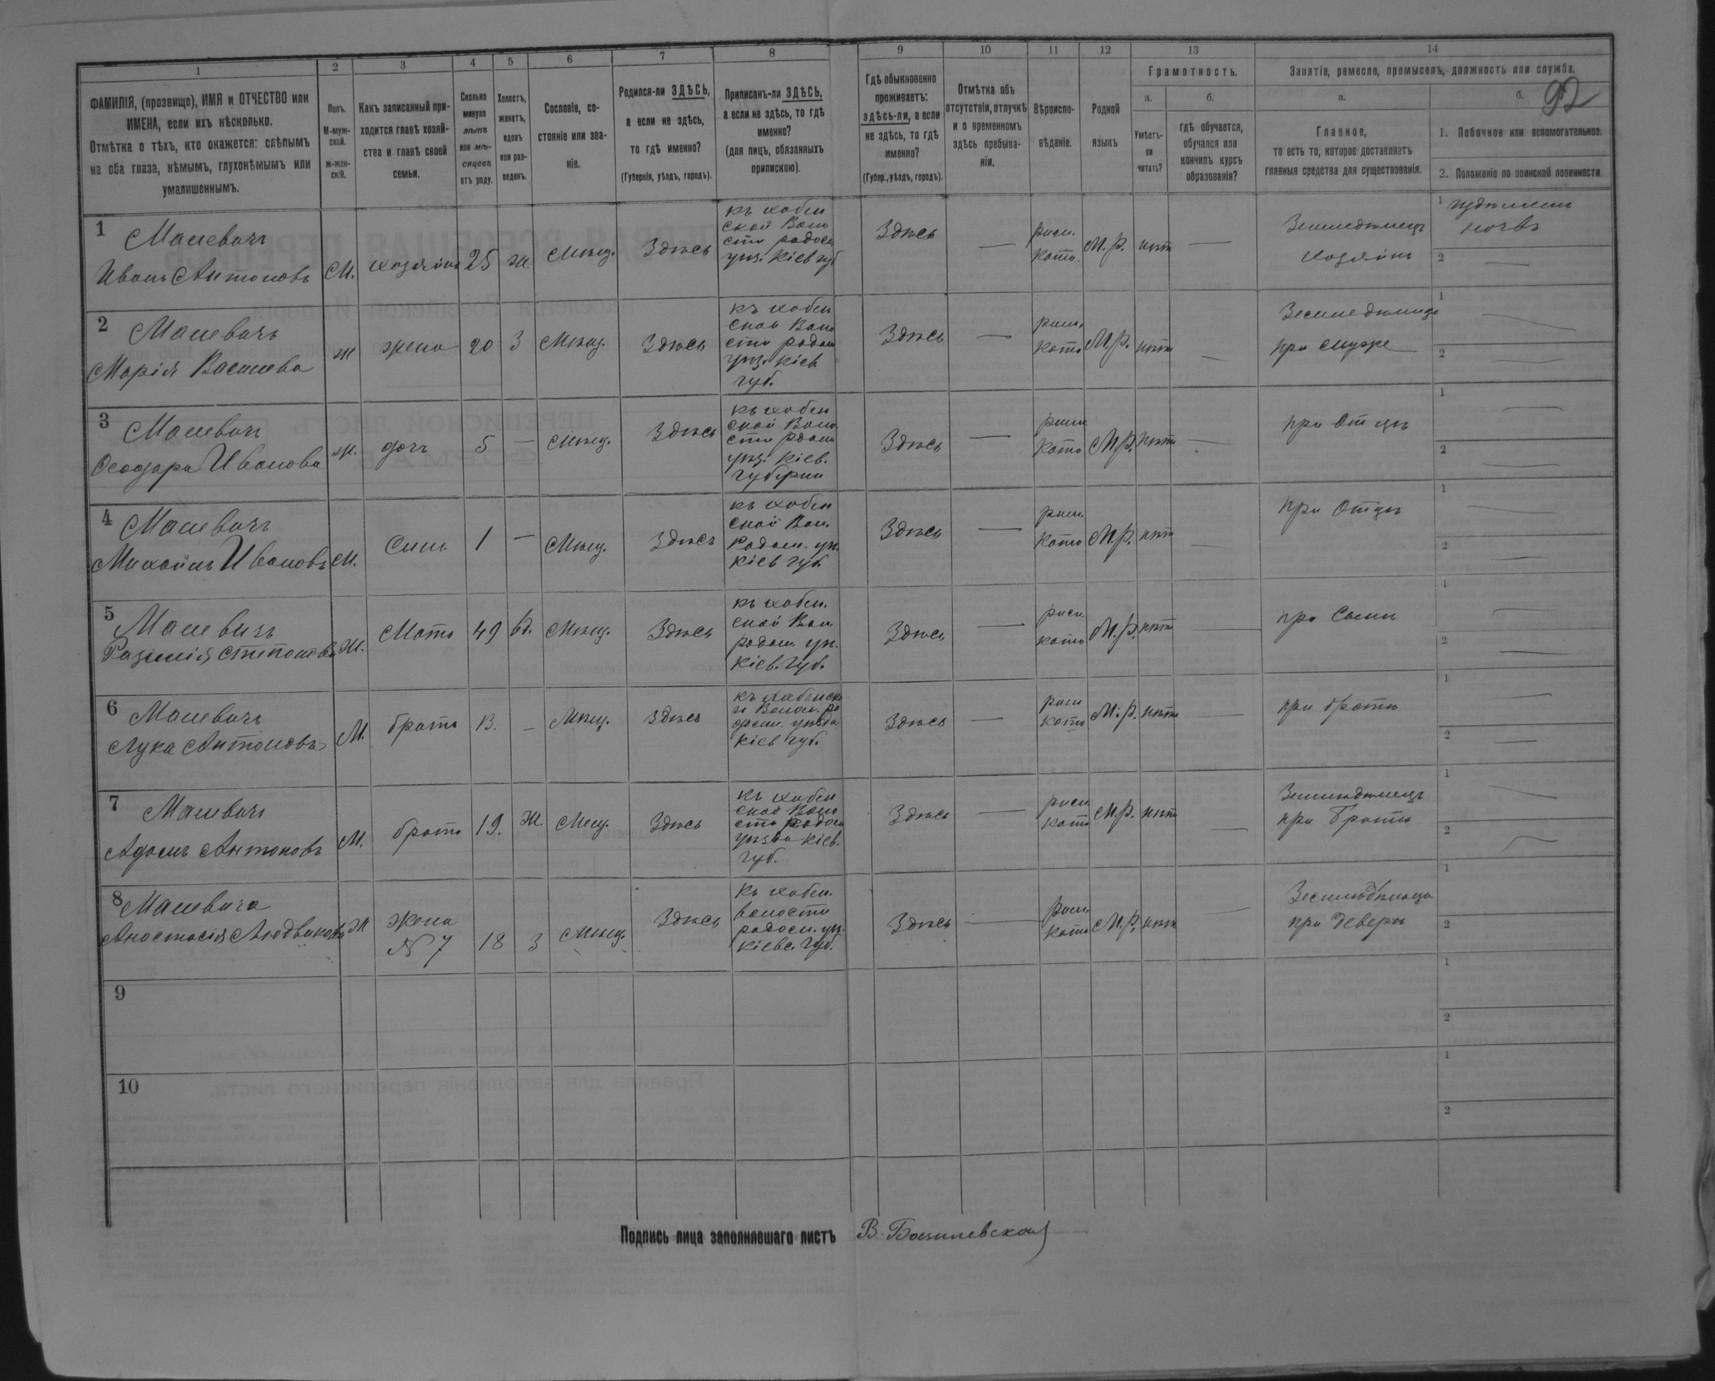 92
1 2 3 4 5 6 7 8 9 10 11 12 13 14
ФАМИЛІЯ, (прозвище), ИМЯ и ОТЧЕСТВО или
ИМЕНА, если ихъ нѣсколько.
Отмѣтка о тѣхъ, кто окажется: слѣпымъ
на оба глаза, нѣмымъ, глухонѣмымъ или
умалишеннымъ.
Полъ.
М-муж-
ской.
ж-жен-
скій.
Какъ записанный при-
ходится главѣ хозяй-
ства и главѣ своей
семьи.
Сколько
минуло
лѣтъ
или мѣ-
сяцевъ
отъ роду.
Холостъ,
женатъ,
вдовъ
или раз-
веденъ.
Сословіе, со-
стояніе или зва-
ніе.
Родился-ли ЗДѢСЬ,
а если не здѣсь,
то гдѣ именно?
(Губернія, уѣздъ, городъ).
Приписанъ-ли ЗДѢСЬ,
а если не здѣсь, то гдѣ
именно?
(для лицъ, обязанныхъ
припискою).
Гдѣ обыкновенно
проживаетъ:
здѣсь-ли, а если
не здѣсь, то гдѣ
именно?
(Губер., уѣздъ, городъ).
Отмѣтка объ
отсутствіи, отлучкѣ
и о временномъ
здѣсь пребыва-
ніи.
Вѣроиспо-
вѣданіе.
Родной
языкъ
Грамотность.
а.
Умѣетъ-
ли
читать?
б.
гдѣ обучается,
обучался или
кончилъ курсъ
образованія?
Занятіе, ремесло, промыселъ, должность или служба.
а.
Главное,
то есть то, которое доставляетъ
главныя средства для существованія.
б.
1. Побочное или вспомогательное.
2. Положеніе по воинской повинности
1 Малевичъ
Иванъ Антоновъ М. хозяинъ 25 ж. Мѣщ. Здѣсь
къ хабен
ской Воло
сти радом
уѣз. Кіев губ
Здѣсь — рим. като. М.р. нѣтъ — Земледѣлецъ
хозяинъ
1
2 —
2 Малевичъ
Марія Васильева ж жена 20 З Мѣщ. Здѣсь
къ хабен
ской Воло
сти радом
уѣз. Кіев
губ.
Здѣсь — рим. като М.р. нѣтъ —
при мужѣ
1 —
2 —
3 Малевичъ
Ивановa ж. дочь 5 — Мѣщ. Здѣсь
къ хабен
ской Воло
сти радом
уѣз. Кіев.
Губерніи
Здѣсь — рим. като М.р. нѣтъ — при Отцѣ
1 —
2 —
4 Малевичъ
Михаилъ Ивановъ М. Сынъ 1 — Мѣщ. Здѣсь
къ хабен
ской Вол.
Радом. уѣ.
Кіев губ
Здѣсь — рим. като М.р. нѣтъ — при Отцѣ
1 —
2 —
5 Малевичъ
Степанова Ж. Мать 49 вд. Мѣщ. Здѣсь
къ хабен.
ской Вол.
радом. уѣ.
Кіев. Губ.
Здѣсь — рим. като М.р. нѣтъ — при Сынѣ
1 —
2 —
6 Малевичъ
Лука Антоновъ М. братъ 13. — Мѣщ. Здѣсь
Кіев губ.
Здѣсь — рим. като М.р. нѣтъ при братѣ
1 —
2 —
7 Малевичъ
Адамъ Антоновъ М. братъ 19. Ж. Мѣщ. Здѣсь
къ хабен
ской Воло
сти радом
уѣзда Кіев.
губ.
Здѣсь — рим. като М.р. нѣтъ — Земледѣлецъ
при Братѣ
1 —
2 —
8 Малевичъ
Анастасія Людвикова Ж жена
№ 7 18 З Мѣщ. Здѣсь
къ хабен.
волости
радом. уѣ.
Кіевс. Губ.
Здѣсь — рим. като М.р. нѣтъ —
при деверѣ
1
2
9
1
2
10
1
2
Подпись лица заполнявшаго листъ